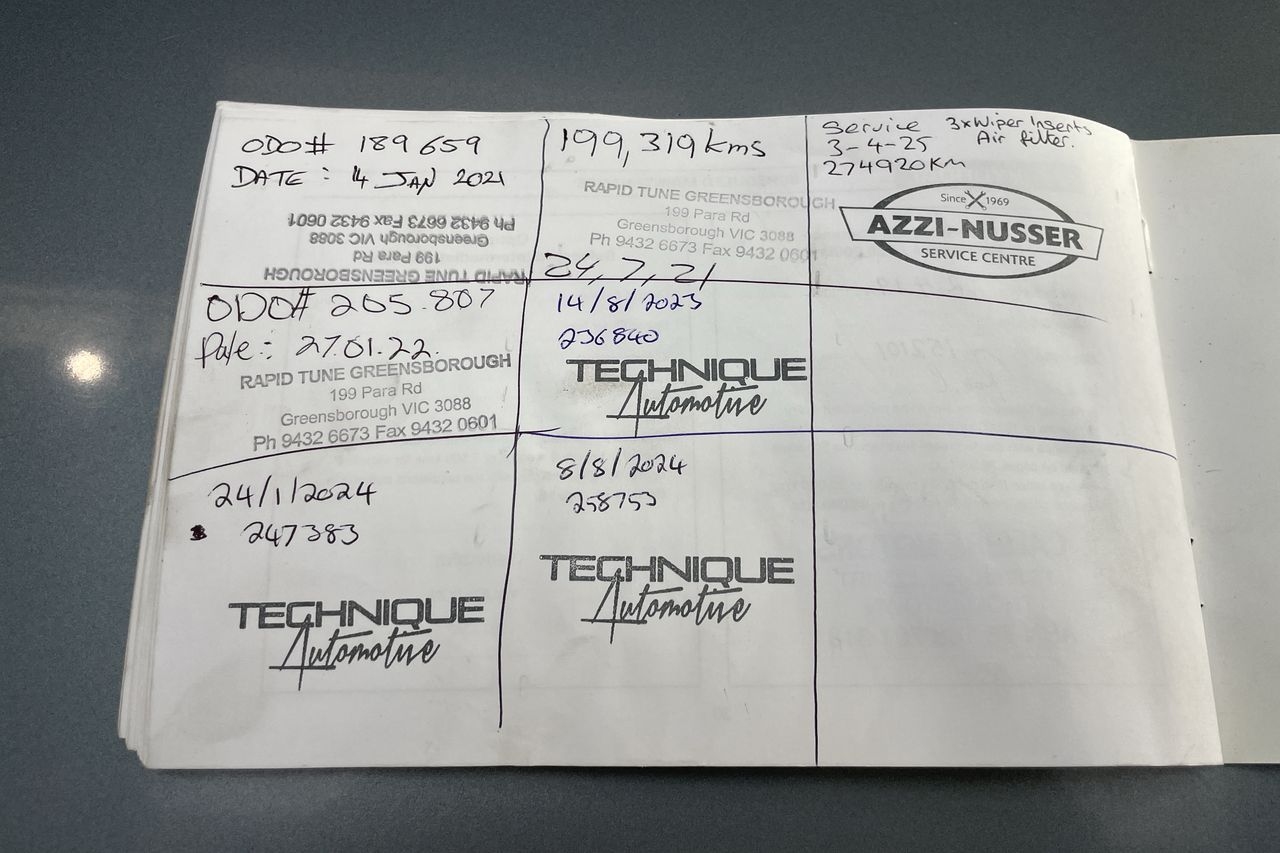 ODO# 189 659
DATE : 14 JAN 2021
RAPID TUNE GREENSBOROUGH
199 Para Rd
Greensborough VIC 3088
Ph 9432 6673 Fax 9432 0601
199,319 kms
RAPID TUNE GREENSBOROUGH
199 Para Rd
Greensborough VIC 3088
Ph 9432 6673 Fax 9432 0601
24,7,21
Service 3xWiper Inserts
3-4-25 Air filter.
274920KM
Since 1969
AZZI-NUSSER
SERVICE CENTRE
ODO# 205.807
Date: 27.01.22.
RAPID TUNE GREENSBOROUGH
199 Para Rd
Greensborough VIC 3088
Ph 9432 6673 Fax 9432 0601
14/8/2023
236840
TECHNIQUE
Automotive
24/1/2024
247383
TECHNIQUE
Automotive
8/8/2024
258753
TECHNIQUE
Automotive